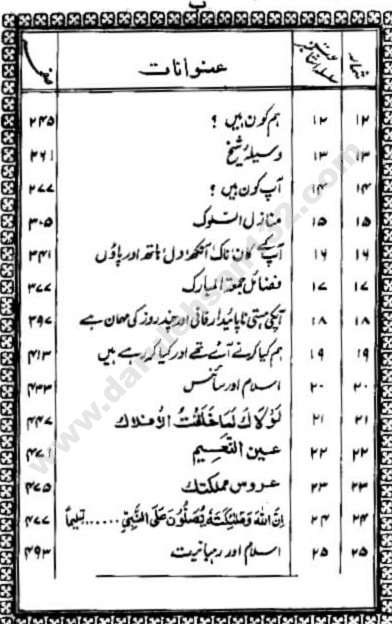 ب
شمار سلسلہ عنوانات صفحہ
۱۲ ۱۲ ہم کون ہیں ؟ ۲۴۵
۱۳ ۱۳ وسیلۂ شیخ ۲۶۱
۱۴ ۱۴ آپ کون ہیں ؟ ۲۷۷
۱۵ ۱۵ منازل السلوک ۳۰۵
۱۶ ۱۶ آپ کے کان ناک آنکھ دل ہاتھ اور پاؤں ۳۴۱
۱۷ ۱۷ فضائل جمعۃ المبارک ۳۷۷
۱۸ ۱۸ آپکی ہستی ناپائیدار فانی اور چند روز کی مہمان ہے ۳۹۷
۱۹ ۱۹ ہم کیا کرنے آئے تھے اور کیا کر رہے ہیں ۴۱۳
۲۰ ۲۰ اسلام اور سائنس ۴۳۳
۲۱ ۲۱ لَوْلَاکَ لَمَا خَلَقْتُ الْاَفْلَاک ۴۴۷
۲۲ ۲۲ عین النعیم ۴۷۱
۲۳ ۲۳ عروس مملکتک ۴۷۵
۲۴ ۲۴ اِنَّ اللہَ وَمَلٰئِکَتَہٗ یُصَلُّوْنَ عَلَی النَّبِیِّ ...... تسلیماً ۴۷۷
۲۵ ۲۵ اسلام اور رہبانیت ۴۹۳